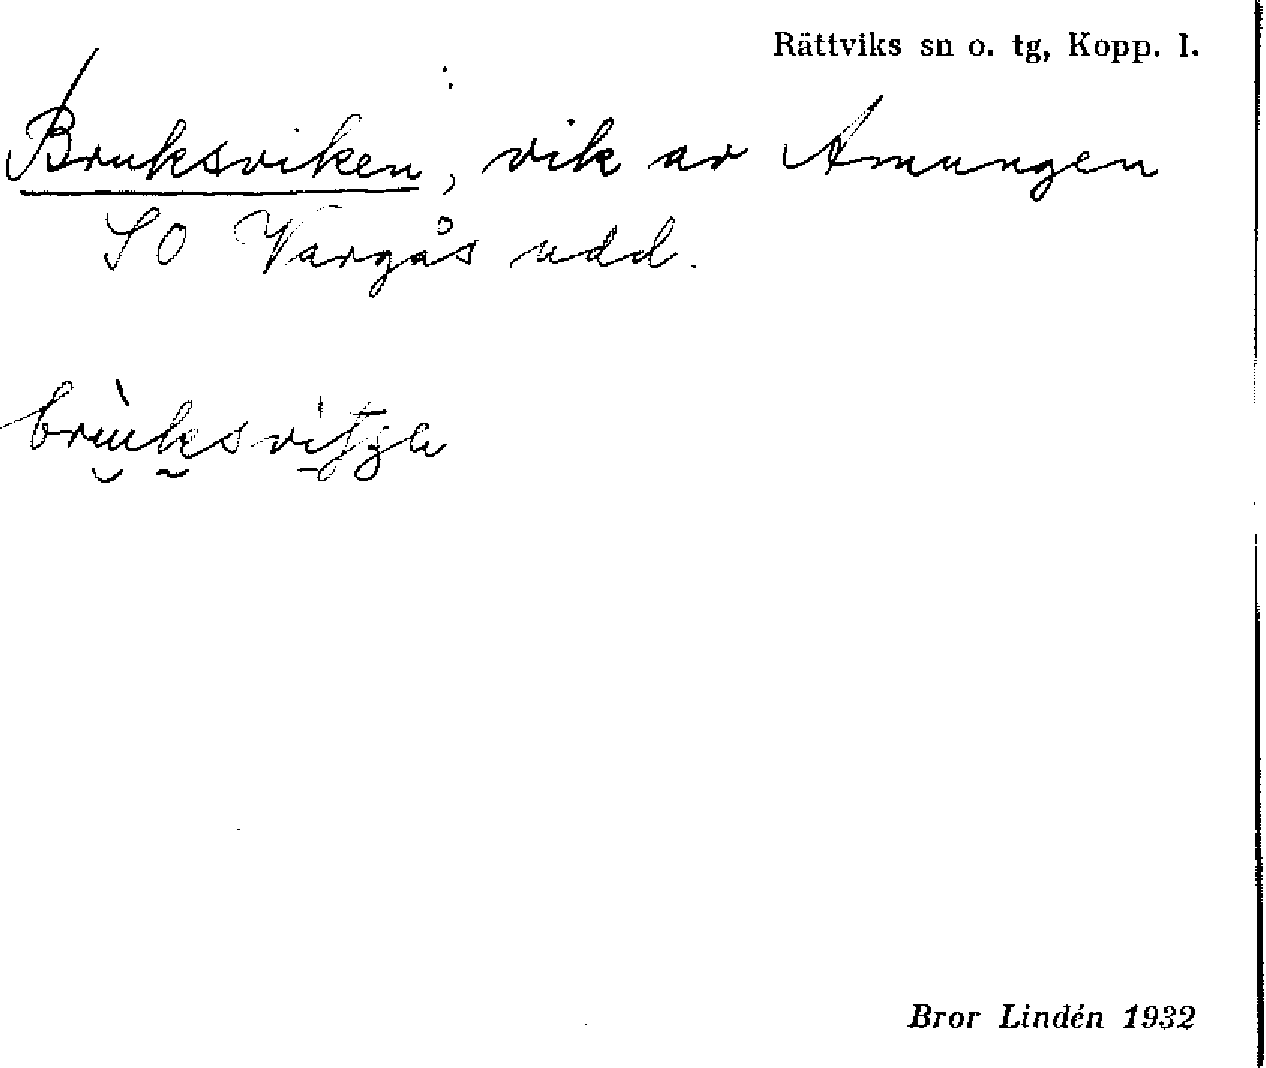 Rättviks sn o. tg, Kopp. l.
Bruksviken, vik av Amungen
SO Vargås udd.
Bror Lindén 1932